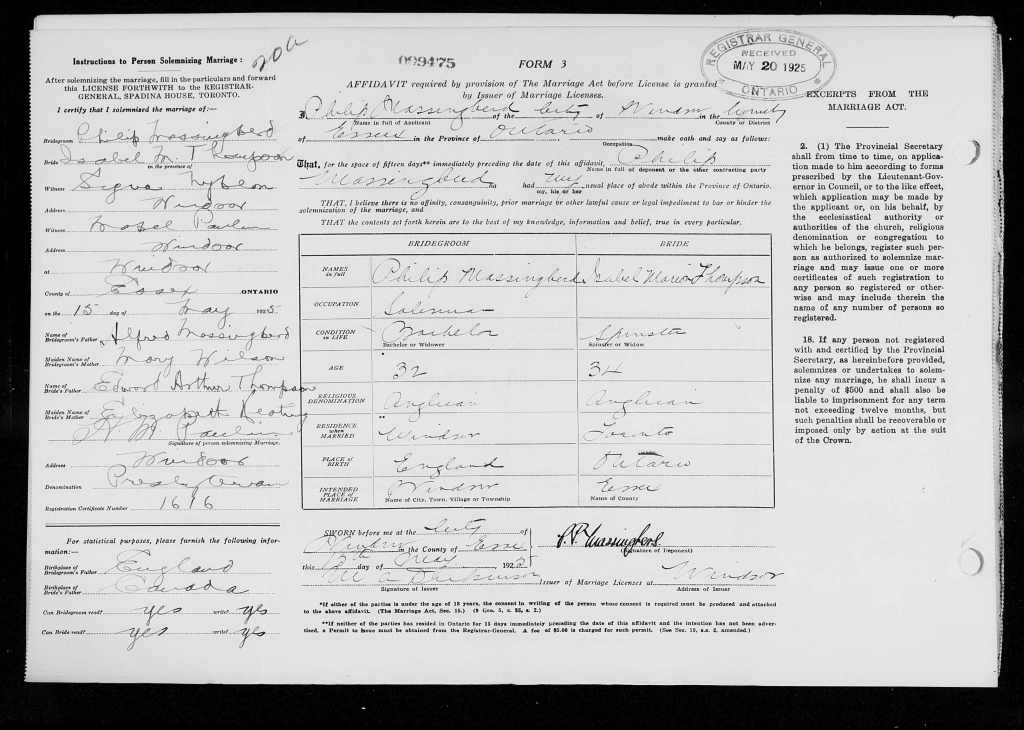 Instructions to Person Solemnizing Marriage:
20a
After solemnizing the marriage, fill in the particulars and forward
this LICENSE FORTHWITH to the REGISTRAR-
GENERAL, SPADINA HOUSE, TORONTO.
I certify that I solemnized the marriage of:—
Bridegroom Philip Massingberd
Bride Isabel M. Thompson
in the presence of
Witness
Address Windsor
Witness Mabel Paulin
Address Windsor
at Windsor
County of Essex ONTARIO
on the 15 day of May 1925
Name of Bridegroom's Father Alfred Massingberd
Maiden Name of Bridegroom's Mother Mary Wilson
Name of Bride's Father Edward Arthur Thompson
Maiden Name of Bride's Mother Elizabeth Keating
H M Paulin
Signature of person solemnizing Marriage.
Address Windsor
Denomination Presbyterian
Registration Certificate Number 1616
For statistical purposes, please furnish the following infor-
mation:—
Birthplace of Bridegroom's Father England
Birthplace of Bride's Father Canada
Can Bridegroom read? yes write? yes
Can Bride read? yes write? yes
009475
FORM 3
REGISTRAR GENERAL
RECEIVED
MAY 20 1925
ONTARIO
AFFIDAVIT required by provision of The Marriage Act before License is granted
by Issuer of Marriage Licenses.
I, Philip Massingberd of the City of Windsor in the County
Name in full of Applicant
County or District
of Essex in the Province of Ontario make oath and say as follows:
Occupation
That, for the space of fifteen days** immediately preceding the date of this affidavit, Philip
Name in full of deponent or the other contracting party
Massingberd ha had my usual place of abode within the Province of Ontario.
my, his or her
THAT, I believe there is no affinity, consanguinity, prior marriage or other lawful cause or legal impediment to bar or hinder the
solemnization of the marriage, and
THAT the contents set forth herein are to the best of my knowledge, information and belief, true in every particular.
BRIDEGROOM BRIDE
NAMES in full Philip Massingberd Isabel Marion Thompson
OCCUPATION Salesman
CONDITION in LIFE Bachelor Spinster
Bachelor or Widower Spinster or Widow
AGE 32 34
RELIGIOUS DENOMINATION Anglican Anglican
RESIDENCE when MARRIED Windsor Toronto
PLACE OF BIRTH England Ontario
INTENDED PLACE OF MARRIAGE Windsor Essex
Name of City, Town, Village or Township Name of County
SWORN before me at the City of
Windsor in the County of Essex
this day of May 1925
Signature of Issuer
P. Massingberd
(Signature of Deponent)
Issuer of Marriage Licenses at Windsor
Address of Issuer
*If either of the parties is under the age of 18 years, the consent in writing of the person whose consent is required must be produced and attached
to the above affidavit. (The Marriage Act, Sec. 15.) (9 Geo. 5, c. 35, s. 2.)
**If neither of the parties has resided in Ontario for 15 days immediately preceding the date of this affidavit and the intention has not been adver-
tised, a Permit to Issue must be obtained from the Registrar-General. A fee of $5.00 is charged for such permit. (See Sec. 19, s.s. 2, amended.)
EXCERPTS FROM THE
MARRIAGE ACT.
2. (1) The Provincial Secretary
shall from time to time, on applica-
tion made to him according to forms
prescribed by the Lieutenant-Gov-
ernor in Council, or to the like effect,
which application may be made by
the applicant or, on his behalf, by
the ecclesiastical authority or
authorities of the church, religious
denomination or congregation to
which he belongs, register such per-
son as authorized to solemnize mar-
riage and may issue one or more
certificates of such registration to
any person so registered or other-
wise and may include therein the
name of any number of persons so
registered.
18. If any person not registered
with and certified by the Provincial
Secretary, as hereinbefore provided,
solemnizes or undertakes to solem-
nize any marriage, he shall incur a
penalty of $500 and shall also be
liable to imprisonment for any term
not exceeding twelve months, but
such penalties shall be recoverable or
imposed only by action at the suit
of the Crown.